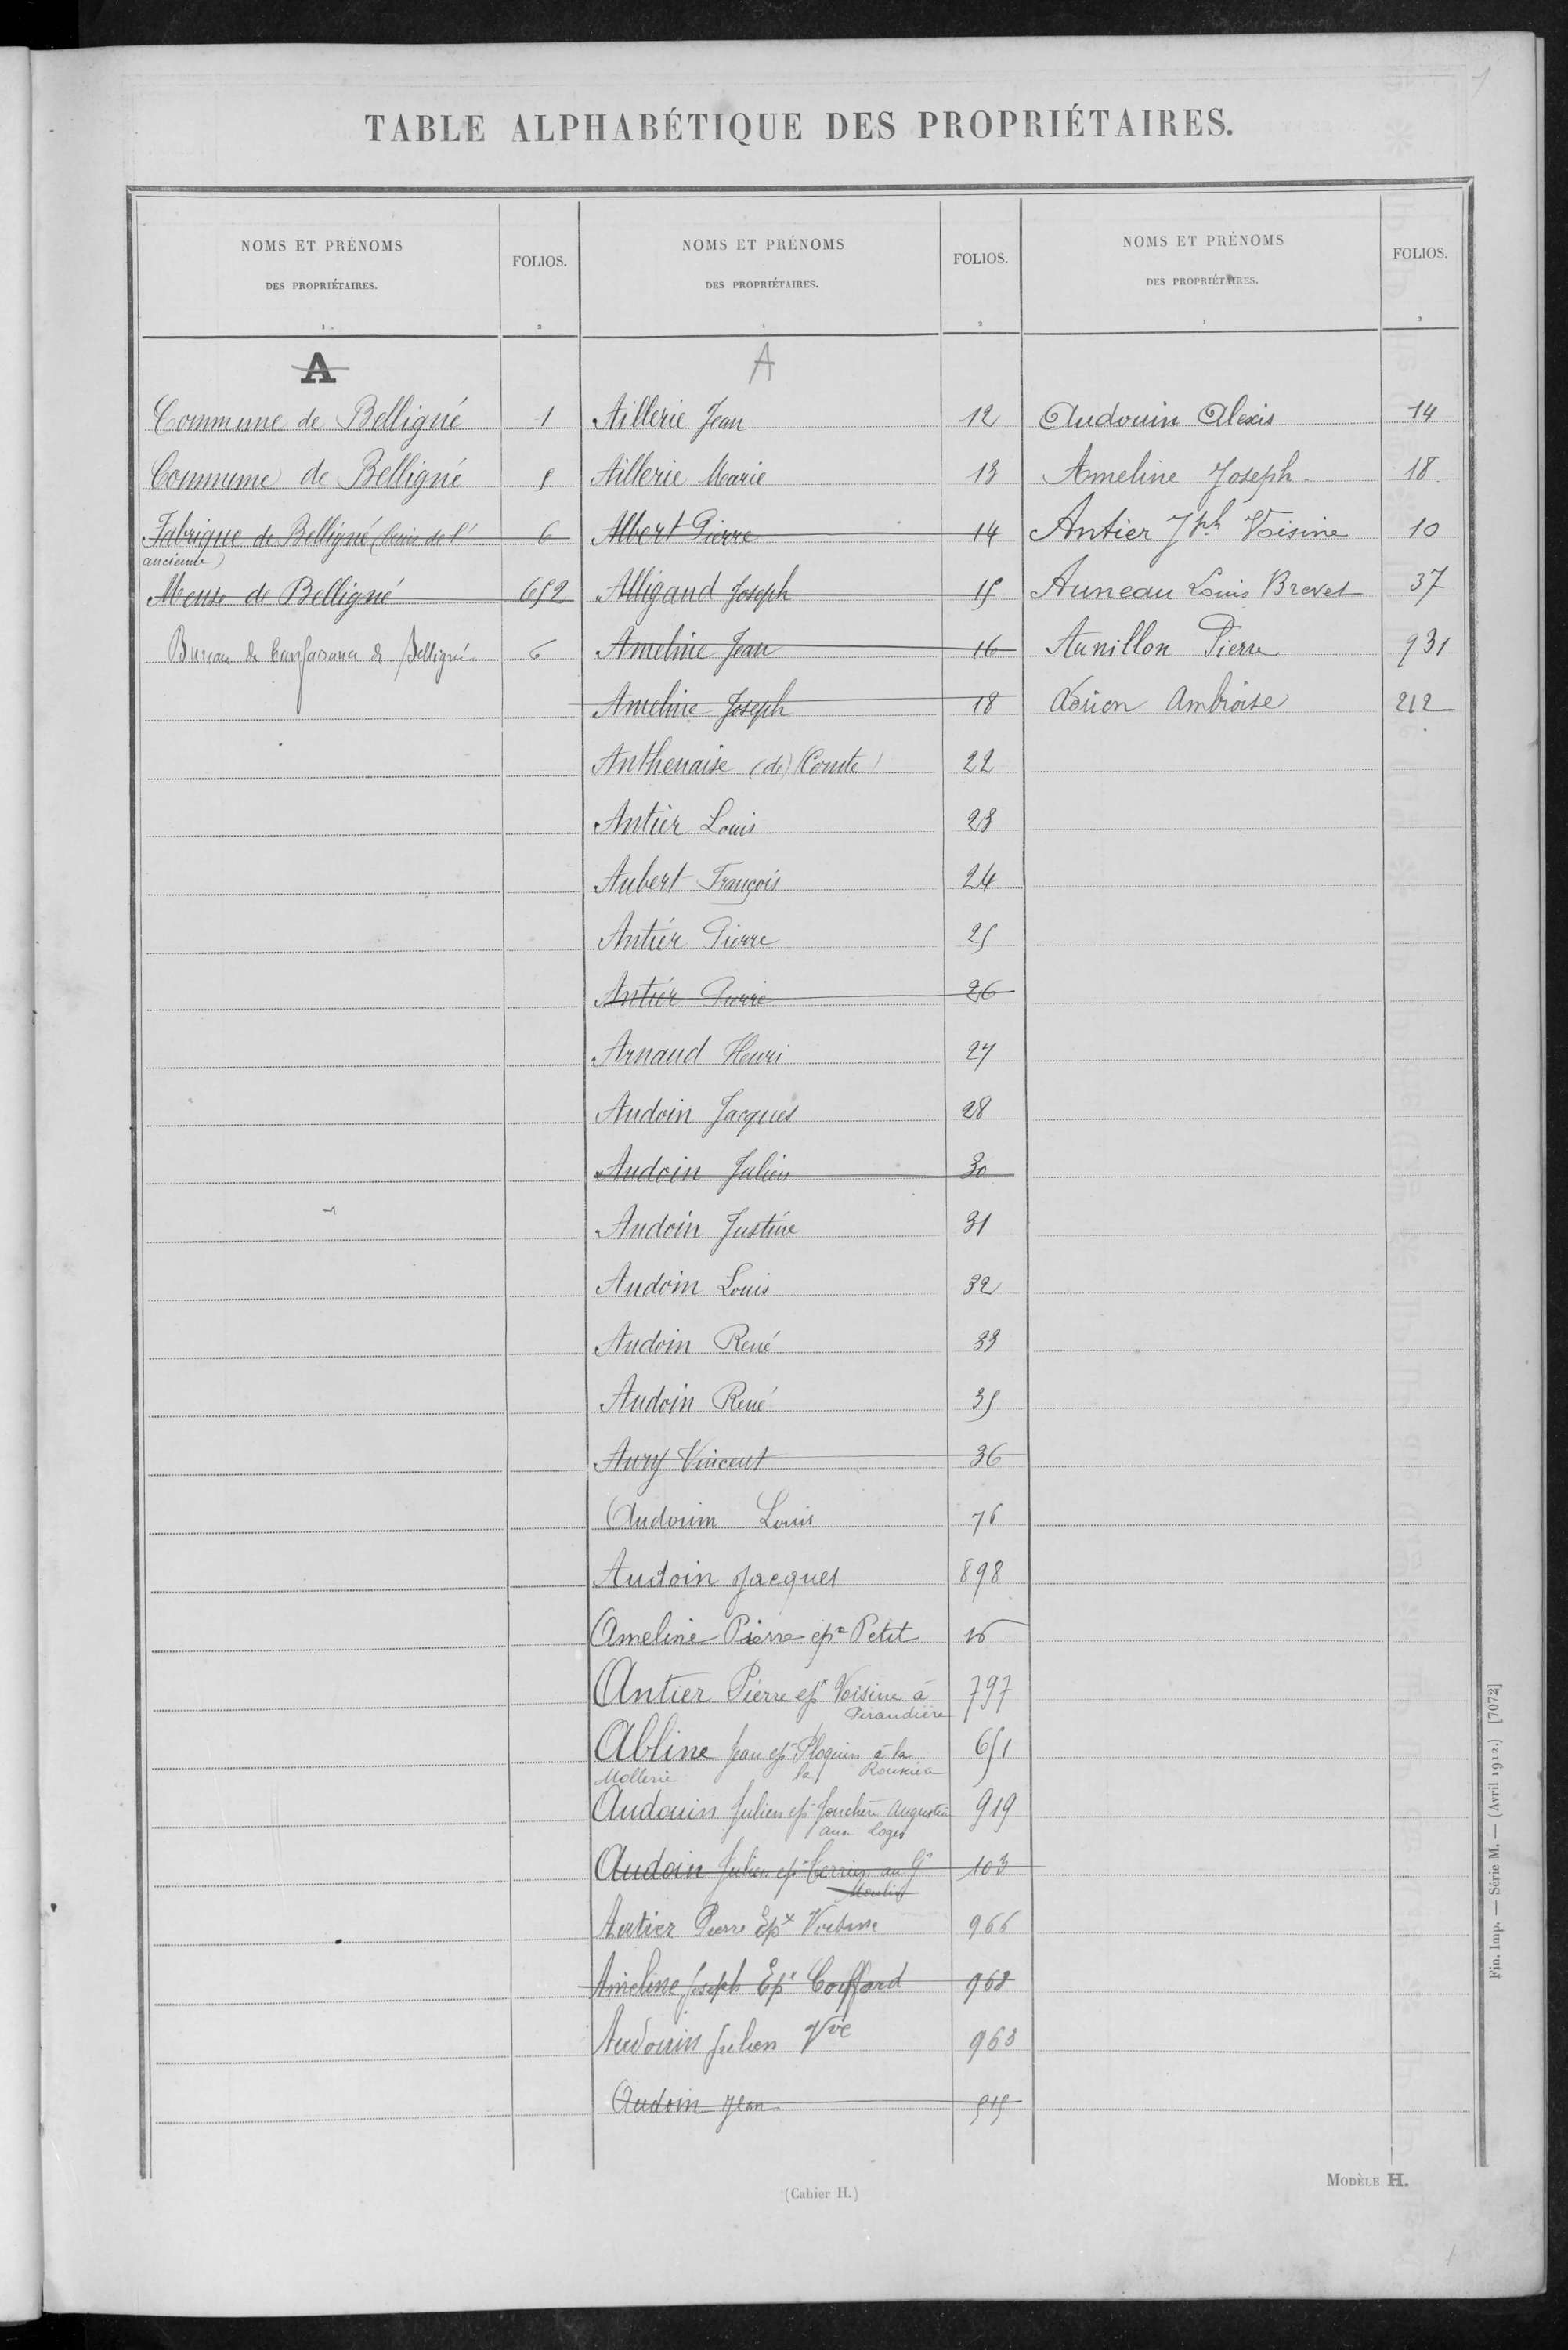 TABLE ALPHABÉTIQUE DES PROPRIÉTAIRES.
NOMS ET PRÉNOMS
DES PROPRIÉTAIRES.
1
FOLIOS.
2
A
Commune de Belligné 1
Commune de Belligné 5
Fabrique de Belligné (biens de l'
ancienne) 6
Mense de Belligné 652
Bureau de bienfaisance de Belligné 6
NOMS ET PRÉNOMS
DES PROPRIÉTAIRES.
1
FOLIOS.
2
A
Aillerie Jean 12
Aillerie Marie 13
Albert Pierre 14
Alligand Joseph 15
Ameline Jean 16
Ameline Joseph 18
Anthenaise (de) (Comte) 22
Antier Louis 23
Aubert François 24
Antier Pierre 25
Antier Pierre 26
Arnaud Henri 27
Audoin Jacques 28
Audoin Julien 30
Audoin Justine 31
Audoin Louis 32
Audoin René 33
Audoin René 35
Aury Vincent 36
Audouin Louis 76
Audoin Jacques 898
Ameline Pierre épx Petit 16
Antier Pierre épx Voisine à 797
Abline Jean épx Ploquin à la 651
Mollerie la
Audouin Julien épx Augustin 919
aux Loges
Audoin Julien épx au Gd 103
Moulin
Antier Pierre Epx Voisine 966
Ameline Joseph Epx Coiffard 968
Audouin Julien Vve 963
Audoin Jean 515
NOMS ET PRÉNOMS
DES PROPRIÉTAIRES.
1
FOLIOS.
2
Audouin Alexis 14
Ameline Joseph 18
Antier Jph Voisine 10
Auneau Louis Brevet 37
Aunillon Pierre 931
Ambroise 212
Fin. Imp. — Série M. — (Avril 1912.) [7072]
(Cahier H.)
MODÈLE H.